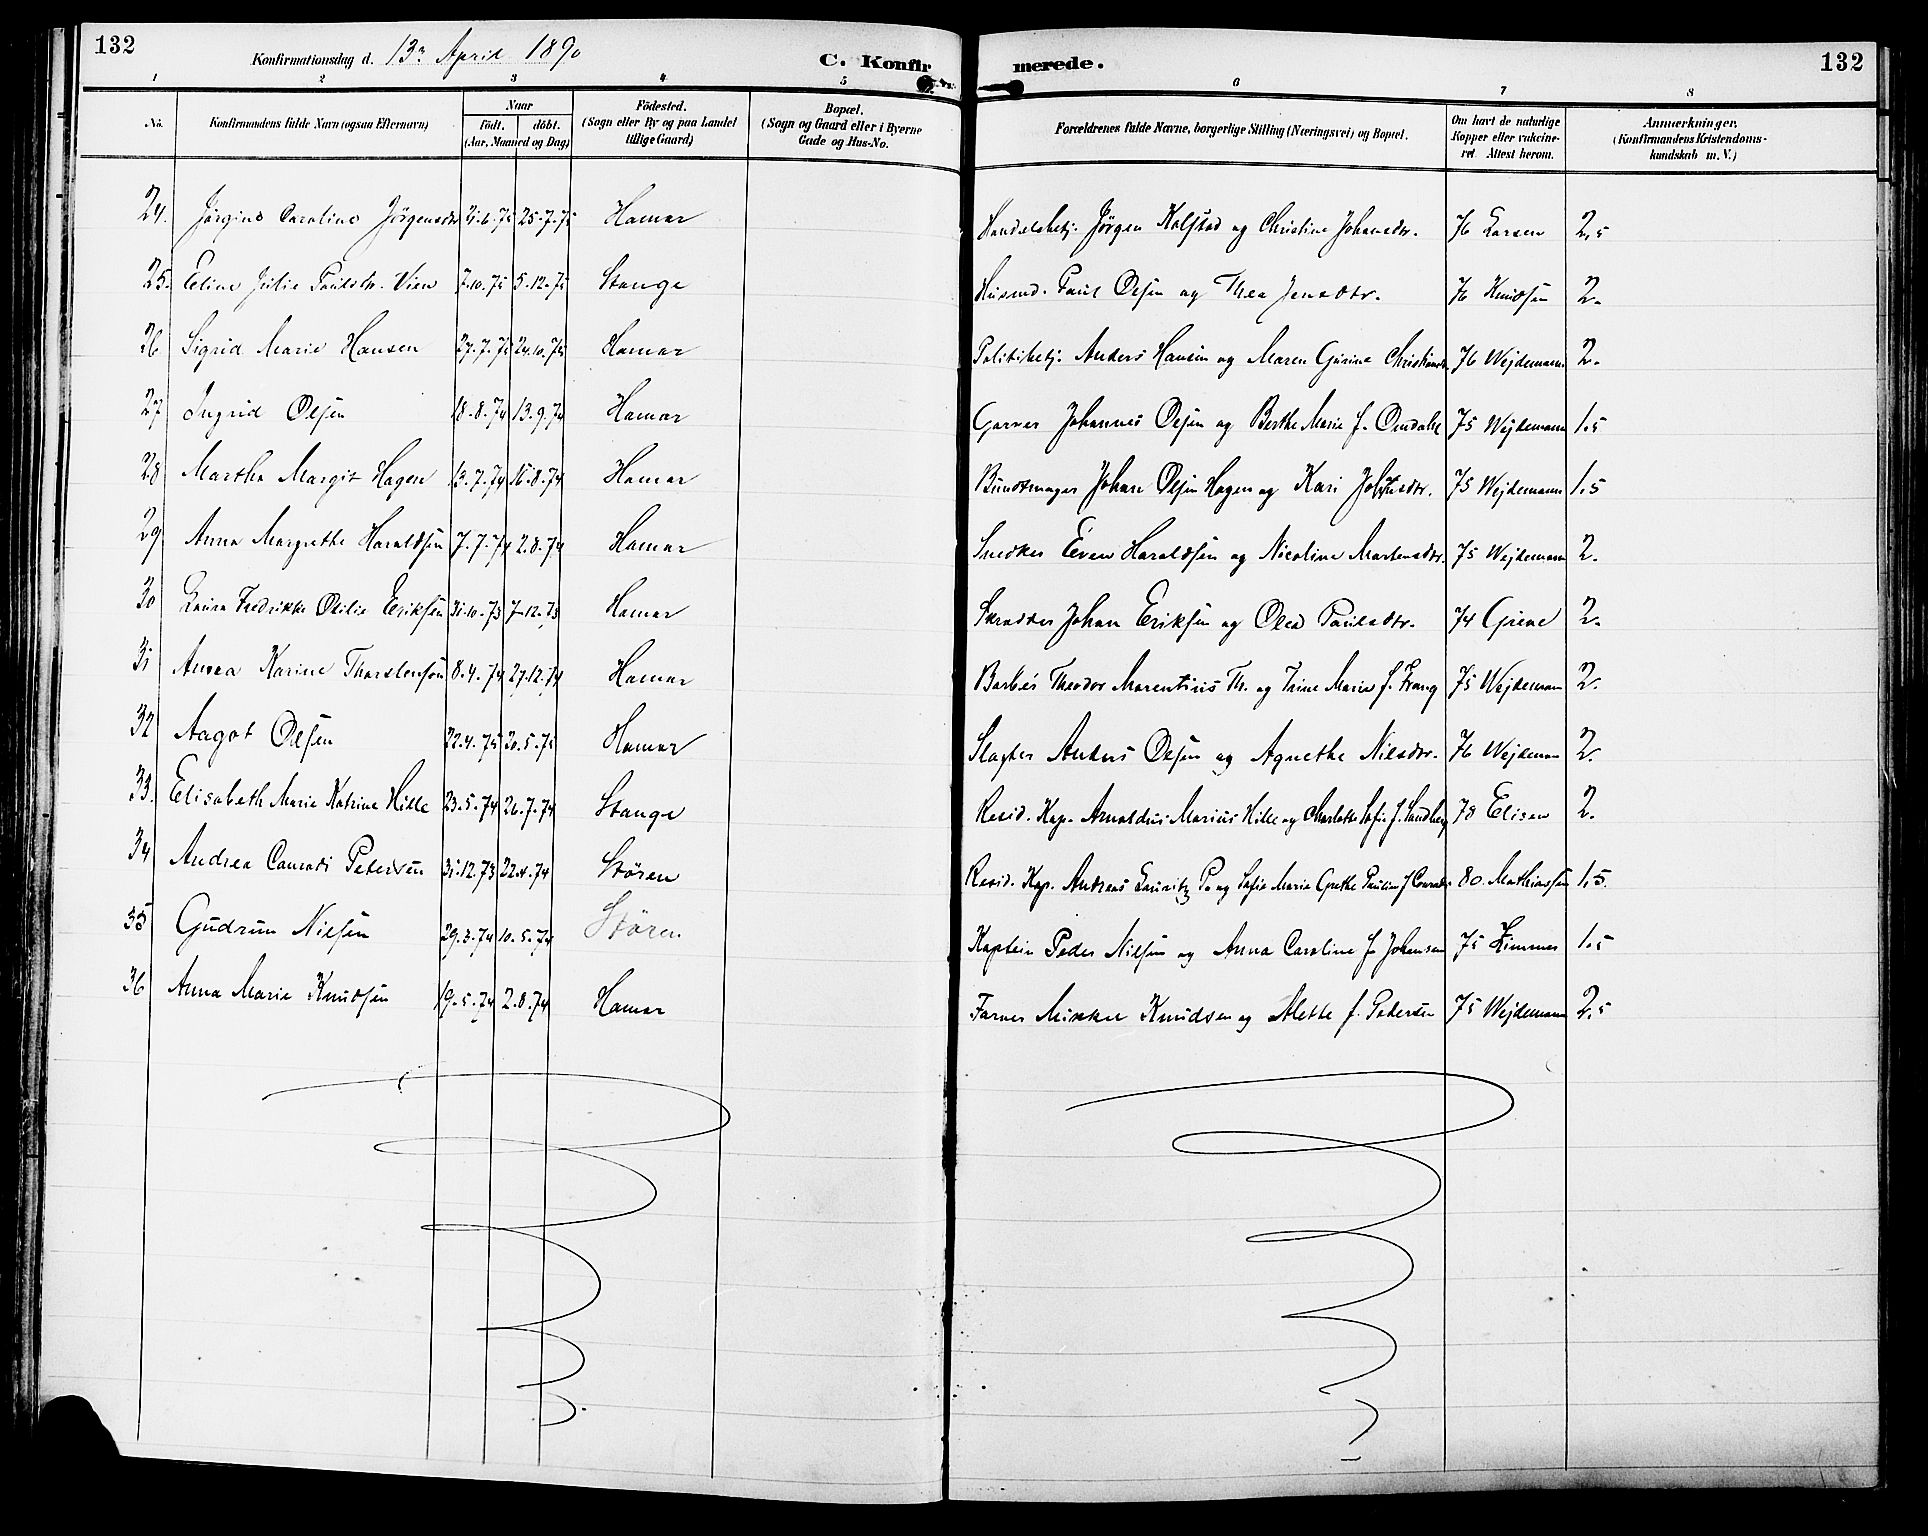 132
Konfirmationsdag d. 13de April 1890
C. Konfirmerede.
132
1 2 3 4 5 6 7 8
No.
Konfirmandens fulde Navn (ogsaa Efternavn)
Naar
Födt. döbt.
(Aar, Maaned og Dag)
Födested.
(Sogn eller By og paa Landet tillige Gaard)
Bopæl.
(Sogn og Gaard eller i Byerne Gade og Hus-No.
Forældrenes fulde Navne, borgerlige Stilling (Næringsvei) og Bopæl.
Om havt de naturlige Kopper eller vakcineret Attest herom.
Anmærkninger.
(Konfirmandens Kristendomskundskab m. V.)
24. Jørgine Caroline Jörgensdtr 25.7.75 Hamar Handelsbetj. Jørgen Kolstad og Christine Johansdtr. 76 Larsen 2,5
25. Eline Julie Paulsdtr. Vien 7.10.75 5.12.75 Stange Husmd. Paul Olsen og Thea Jensdtr. 76 Knudsen 2.
26 Sigrid Marie Hansen 27.7.75 24.10.75 Hamar Politibetj. Anders Hansen og Maren Gurine Christiansdtr. 76 Wejdemann 2.
27 Ingrid Olsen 18.8.74 13.9.74 Hamar Garver Johannes Olsen og Berthe Marie f. Omdahl 75 Wejdemann 1.5
28 Martha Margit Hagen 13.7.74 16.8.74 Hamar Bundtmager Johan Olsen Hagen og Kari 75 Wejdemann 1.5
29 Anna Margrethe Haraldsen 7.7.74 2.8.74 Hamar Snedker Even Haraldsen og Nicoline Martensdtr. 75 Wejdemann 2.
30 Laura Fredrikke Otilie Eriksen 31.10.73 7.12.73 Hamar Skrædder Johan Eriksen og Olea Paulsdtr. 74 Greve 2.
31 Anna Karine Thorstensen 8.4.74 27.12.74 Hamar Barber Theodor Marentius Th. og Trine Marie f. 75 Wejdemann 2.
32 Aagot Olsen 22.4.75 30.5.75 Hamar Slagter Anders Olsen og Agnethe Nilsdtr. 76 Wejdemann 2.
33. Elisabeth Marie Katrine Hille 23.5.74 26.7.74 Stange Resid. Kap. Arnoldus Marius Hille og Charlotte Sofie f. Sandberg 78 Elisen 2.
34 Andrea Conradi Petersen 31.12.73 22.4.74 Stören Resid. Kap. Andreas Lauritz P. og Sofie Marie Grethe Pauline f Conradi 80. Mathiassen 1,5.
35 Gudrun Nilsen 29.3.74 10.5.74 Stören Kaptein Peder Nilsen og Anna Caroline f. Johansen 75 Zimmer 1.5
36 Anna Marie Knudsen 19.5.74 2.8.74 Hamar Farver Mikkel Knudsen og Alette f. Petersen 75 Wejdemann 2,5